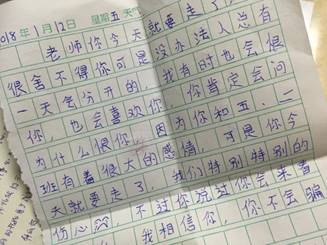 018年1月12日 星期五 天气
老师你今天就要走了,
很舍不得你可是没办法人总有
一天会分开的,我有时也会很
你,也会喜欢你,你肯定会问
为什么很你,因为你和五.二
班有着很大的感情,可是你今
天就要走了,我们特别特别的
伤心 不过你说过你会来看
我相信你,你不会骗